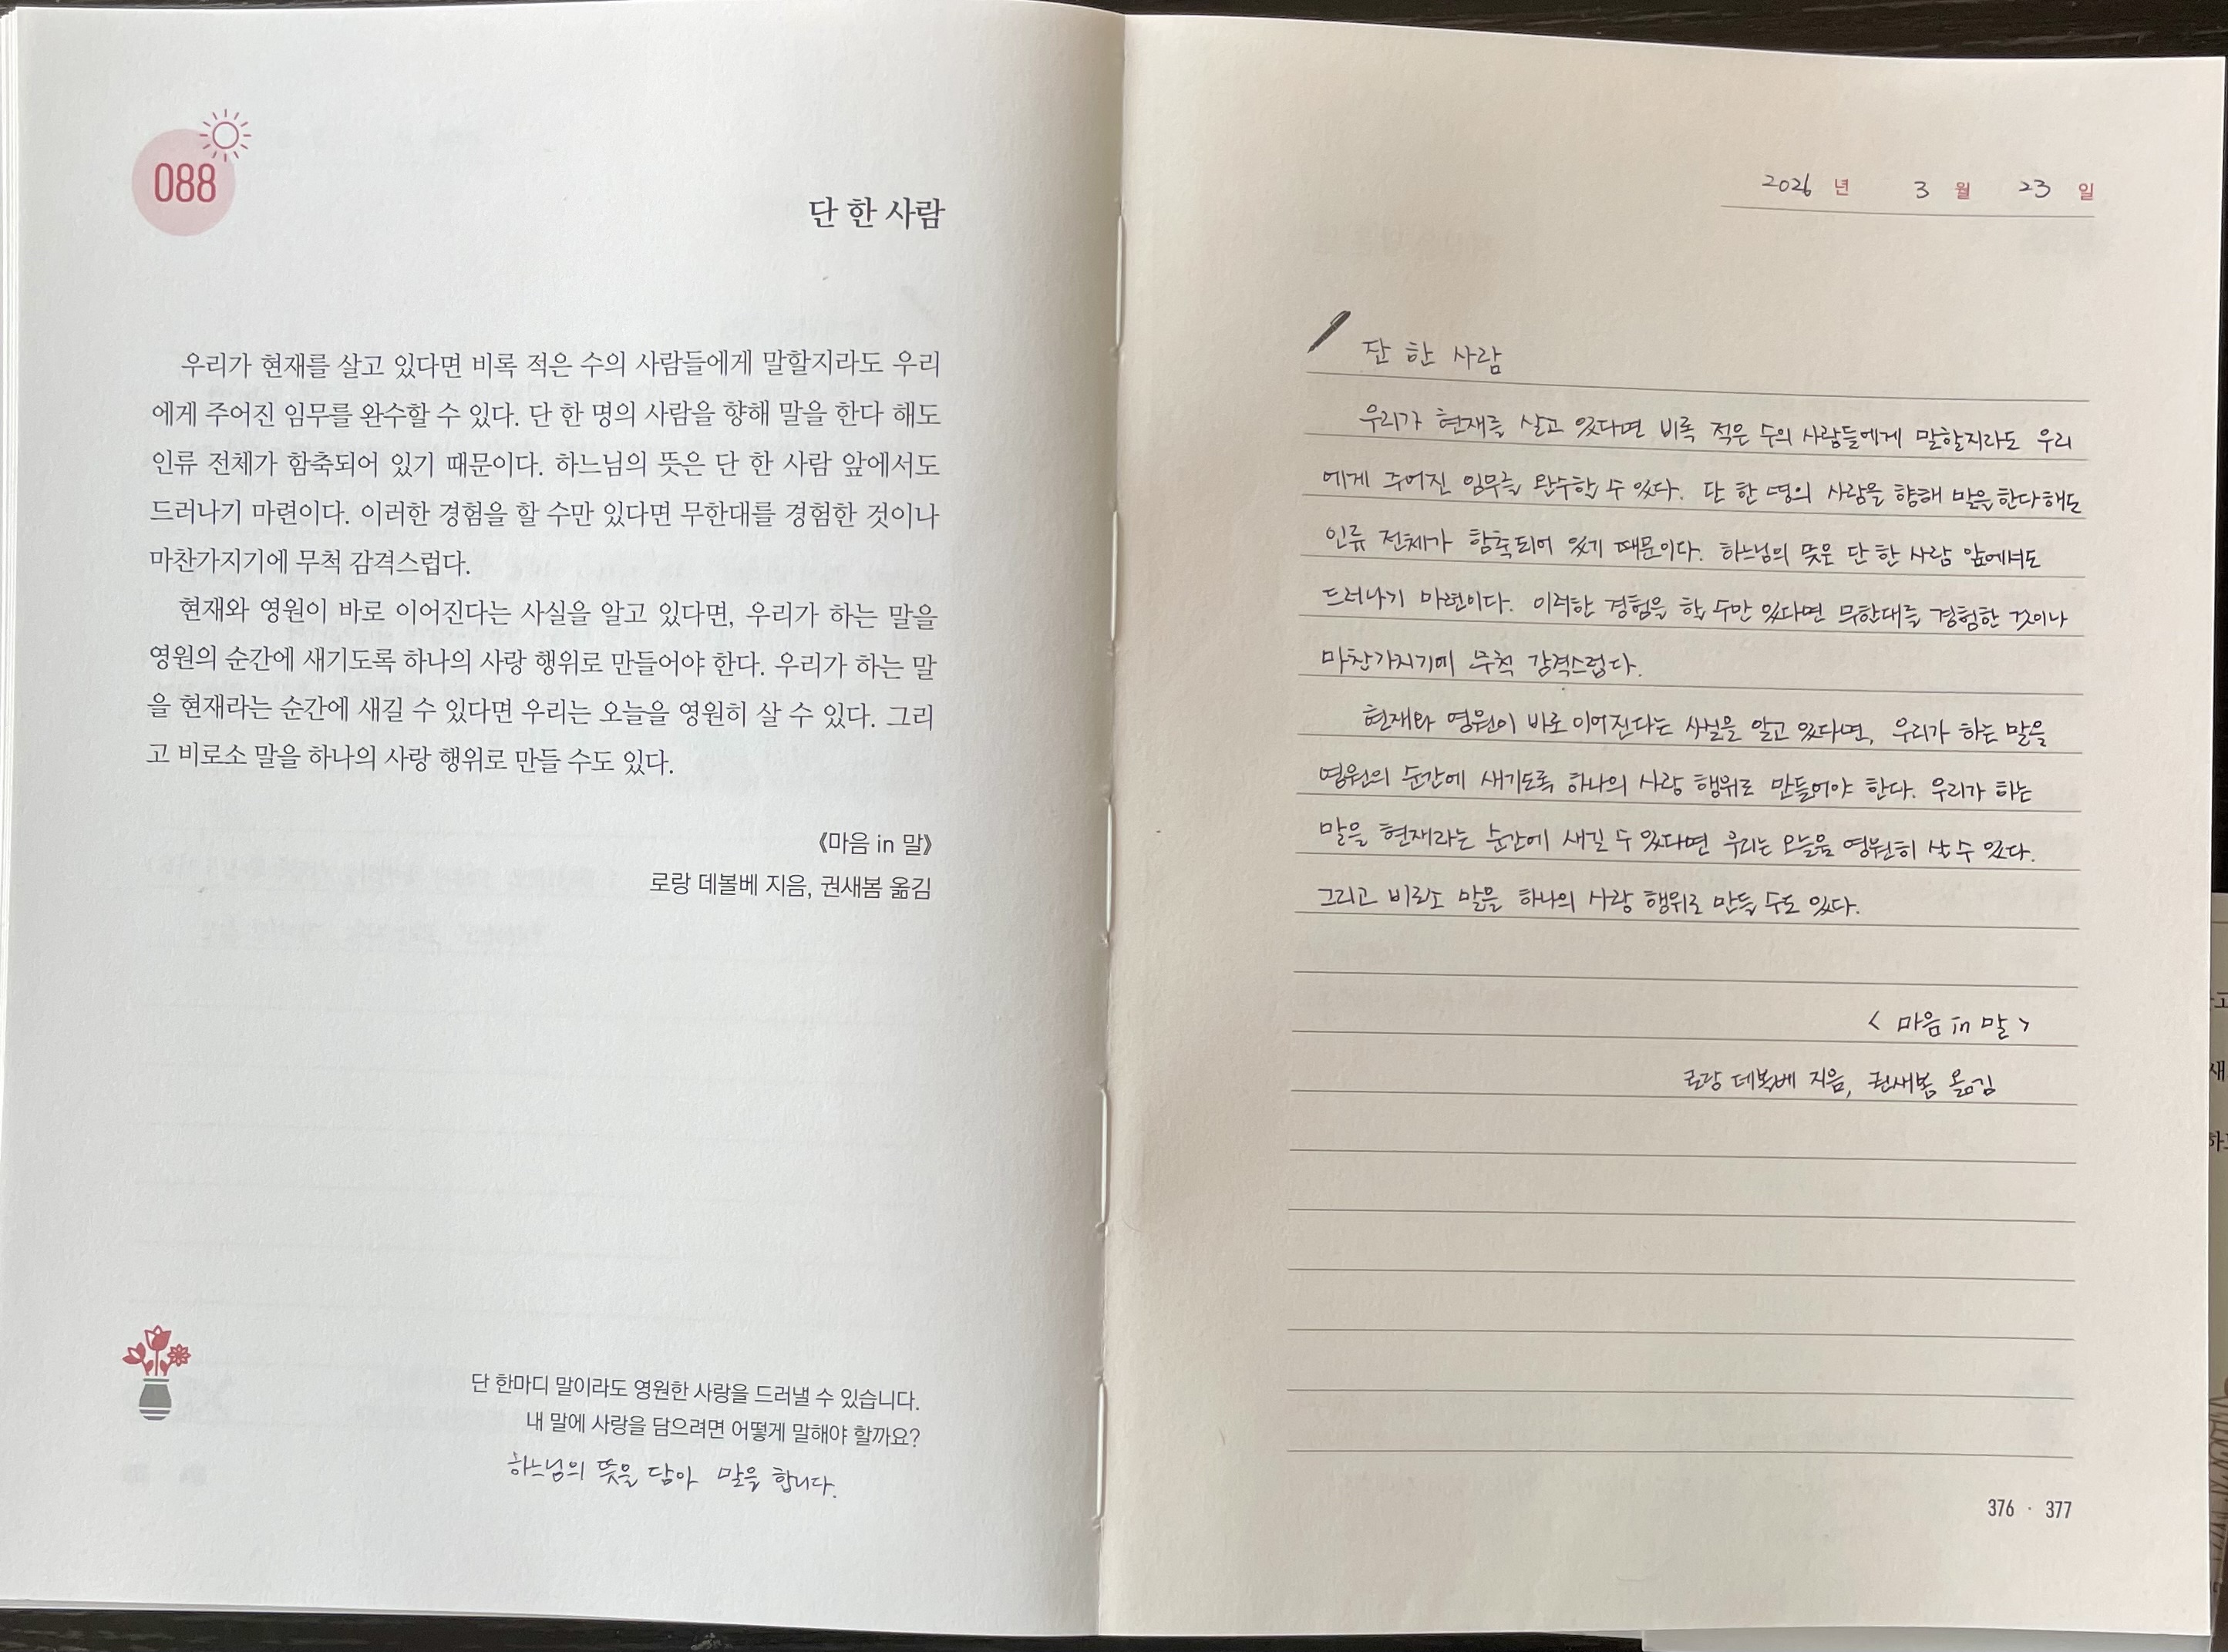 088
단 한 사람
우리가 현재를 살고 있다면 비록 적은 수의 사람들에게 말할지라도 우리
에게 주어진 임무를 완수할 수 있다. 단 한 명의 사람을 향해 말을 한다 해도
인류 전체가 함축되어 있기 때문이다. 하느님의 뜻은 단 한 사람 앞에서도
드러나기 마련이다. 이러한 경험을 할 수만 있다면 무한대를 경험한 것이나
마찬가지기에 무척 감격스럽다.
현재와 영원이 바로 이어진다는 사실을 알고 있다면, 우리가 하는 말을
영원의 순간에 새기도록 하나의 사랑 행위로 만들어야 한다. 우리가 하는 말
을 현재라는 순간에 새길 수 있다면 우리는 오늘을 영원히 살 수 있다. 그리
고 비로소 말을 하나의 사랑 행위로 만들 수도 있다.
《마음 in 말》
로랑 데볼베 지음, 권새봄 옮김
단 한마디 말이라도 영원한 사랑을 드러낼 수 있습니다.
내 말에 사랑을 담으려면 어떻게 말해야 할까요?
하느님의 뜻을 담아 말을 합니다.
2026 년 3 월 23 일
단 한 사람
우리가 현재를 살고 있다면 비록 적은 수의 사람들에게 말할지라도 우리
에게 주어진 임무를 완수할 수 있다. 단 한 명의 사람을 향해 말을 한다 해도
인류 전체가 함축되어 있기 때문이다. 하느님의 뜻은 단 한 사람 앞에서도
드러나기 마련이다. 이러한 경험을 할 수만 있다면 무한대를 경험한 것이나
마찬가지기에 무척 감격스럽다.
현재와 영원이 바로 이어진다는 사실을 알고 있다면, 우리가 하는 말을
영원의 순간에 새기도록 하나의 사랑 행위로 만들어야 한다. 우리가 하는
말을 현재라는 순간에 새길 수 있다면 우리는 오늘을 영원히 살 수 있다.
그리고 비로소 말을 하나의 사랑 행위로 만들 수도 있다.
< 마음 in 말 >
로랑 데볼베 지음, 권새봄 옮김
376 · 377